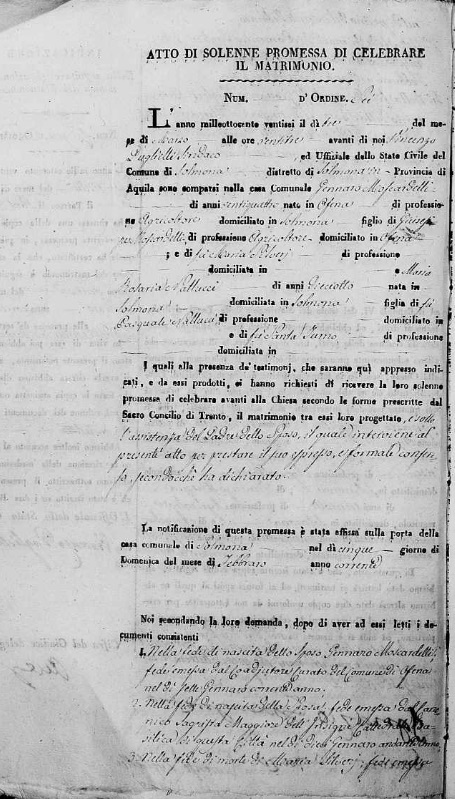 ATTO DI SOLENNE PROMESSA DI CELEBRARE
IL MATRIMONIO.
NUM. D' ORDINE. Sei
L'anno milleottocento ventisei il dì tre del me-
se di Marzo alle ore ventitre avanti di noi Vincenzo
Puglielli Sindaco ed Uffiziale dello Stato Civile del
Comune di Solmona distretto di Solmona Provincia di
Aquila sono comparsi nella casa Comunale Gennaro Moscardelli
di anni ventiquattro nato in Ofena di professio-
ne Agricoltore domiciliato in Solmona figlio di Giusep-
pe Moscardelli di professione Agricoltore domiciliato in Ofena
; e di fu Maria Silverj di professione
domiciliata in e Maria
Rosaria Pallucci di anni dieciotto nata in
Solmona domiciliata in Solmona figlia di fu
Pasquale Pallucci di professione domiciliato in
e di fu Santa di professione
domiciliata in
I quali alla presenza de' testimonj, che saranno quì appresso indi-
cati, e da essi prodotti, ci hanno richiesti di ricevere la loro solenne
promessa di celebrare avanti alla Chiesa secondo le forme prescritte dal
Sacro Concilio di Trento, il matrimonio tra essi loro progettato, e sotto
l'assistenza del Padre dello Sposo, il quale interviene al
presente atto per prestare il suo espresso, e formale consen-
so, secondocchè ha dichiarato.
La notificazione di questa promessa è stata affissa sulla porta della
casa comunale di Solmona nel dì cinque giorno di
Domenica del mese di Febbraro anno corrente
Noi secondando la loro domanda, dopo di aver ad essi letti i do-
cumenti consistenti
1. Nella fede di nascita dello Sposo Gennaro Moscardelli,
fede emessa dal Coadjutore Curato del Comune di Ofena
nel dì sette Gennaro corrente anno;
2. Nella fede di nascita della Sposa, fede emessa dal Cano-
nico Sagrista Maggiore dell'Insigne Cattedrale Ba-
silica di questa Città nel dì dieci Gennaro andante anno
3. Nella fede di morte di Maria Silverj, fede emessa